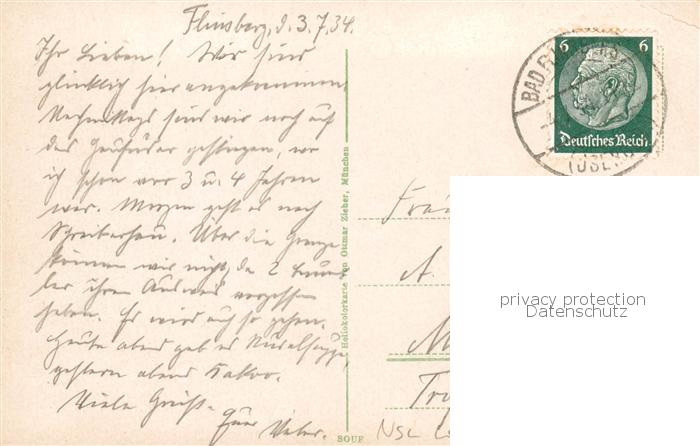 Flinsberg, d. 3.7.34.
Ihr Lieben! Wir sind
glücklich hier angekommen.
Nachmittags sind wir noch auf
das Heufuder gestiegen, wo
ich schon vor 3 u. 4 Jahren
war. Morgen geht es nach
Schreiberhau. Über die Grenze
können wir nicht, da 2
ihren Ausweis vergessen
haben. Es wird auch so gehen.
Heute abend gab es Nudelsuppe,
gestern abend Kakao.
Viele Grüße
Euer
Heliokolorkarte von Ottmar Zieher, München
SOUF
BAD
(ISERG
6 6
Deutsches Reich
A.
M
NSL
privacy protection
Datenschutz